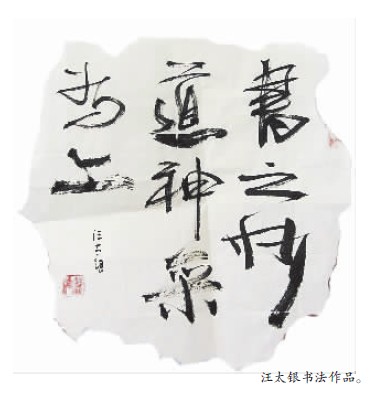 書之妙
道神采
为上
汪太银
汪太银书法作品。